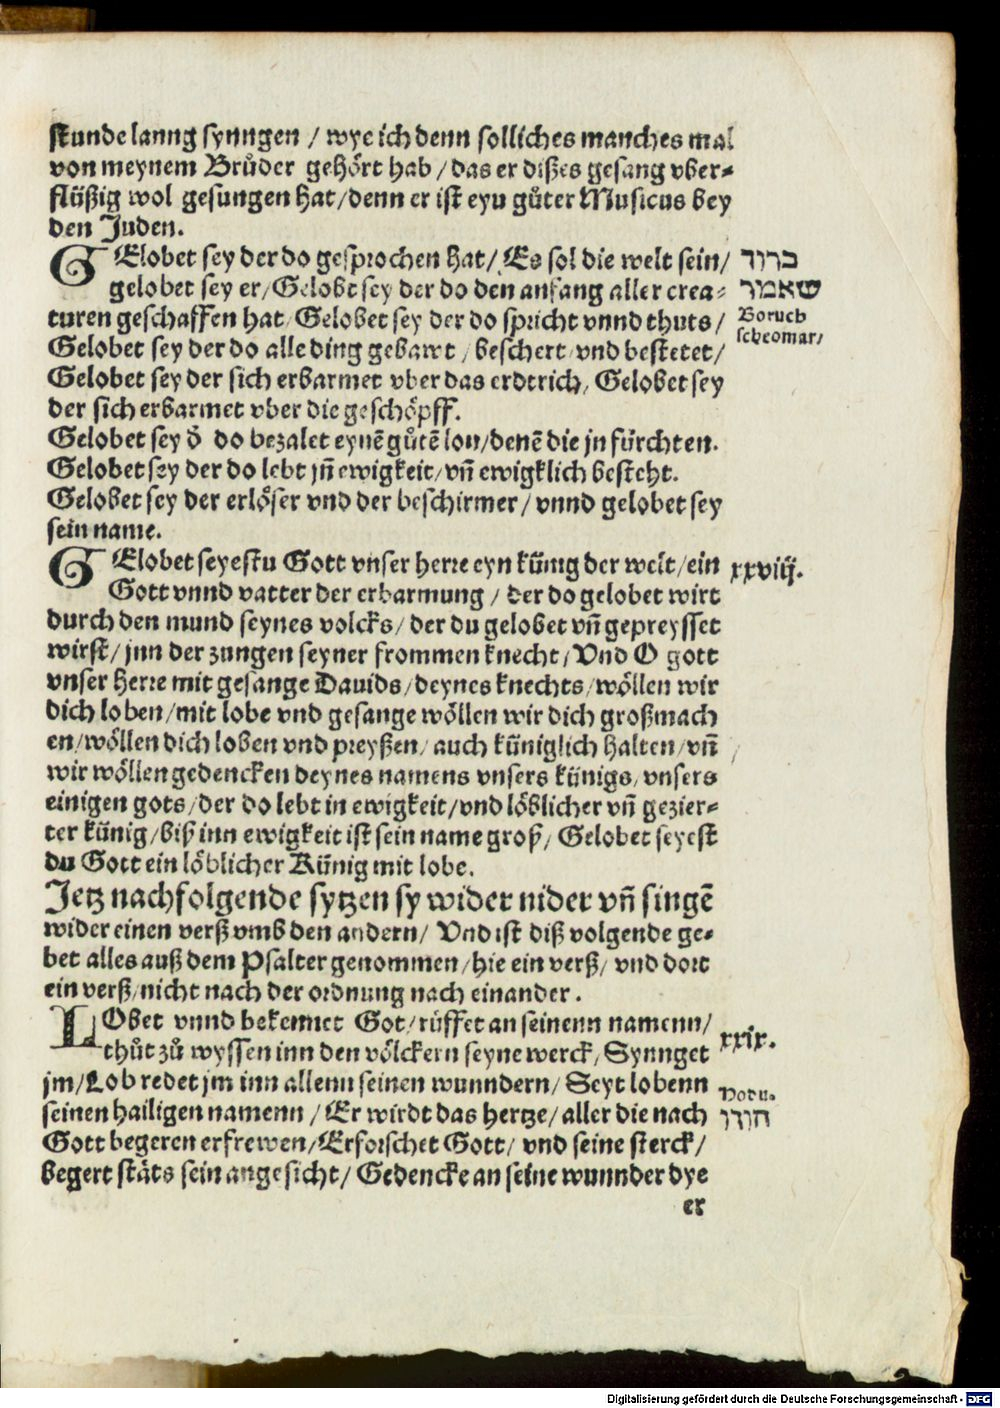 stunde lanng synngen / wye ich denn solliches manches mal
von meynem Brůder gehört hab / das er dißes gesang vber-
flüßig wol gesungen hat / denn er ist eyn gůter Musicus bey
den Juden.
GElobet sey der do gesprochen hat / Es sol die welt sein /
gelobet sey er / Gelobt sey der do den anfang aller crea-
turen geschaffen hat / Gelobet sey der do spricht vnnd thuts /
Gelobet sey der do alle ding gebawt / beschert vnd bestetet /
Gelobet sey der sich erbarmet vber das erdtrich / Gelobet sey
der sich erbarmet vber die geschöpff.
ברוך
שאמר
Boruch
scheomar /
Gelobet sey ď do bezalet eynē gůtē lon / denē die jn fürchten.
Gelobet sey der do lebt jñ ewigkeit / vñ ewigklich besteht.
Gelobet sey der erlöser vnd der beschirmer / vnnd gelobet sey
sein name.
GElobet seyestu Gott vnser herre eyn künig der welt / ein
xxviij.
Gott vnnd vatter der erbarmung / der do gelobet wirt
durch den mund seynes volcks / der du gelobet vñ gepreysset
wirst / jnn der zungen seyner frommen knecht / Vnd O gott
vnser herre mit gesange Dauids / deynes knechts / wöllen wir
dich loben / mit lobe vnd gesange wöllen wir dich großmach
en / wöllen dich loben vnd preyßen / auch küniglich halten / vñ
wir wöllen gedencken deynes namens vnsers künigs / vnsers
einigen gots / der do lebt in ewigkeit / vnd löblicher vñ gezier-
ter künig / biß inn ewigkeit ist sein name groß / Gelobet seyest
du Gott ein löblicher Künig mit lobe.
Jetz nachfolgende sytzen sy wider nider vñ singē
wider einen verß vmb den andern / Vnd ist diß volgende ge-
bet alles auß dem Psalter genommen / hie ein verß / vnd dort
ein verß / nicht nach der ordnung nach einander.
LObet vnnd bekennet Got / rüffet an seinenn namenn /
xxix.
thůt zů wyssen inn den völckern seyne werck / Synnget
jm / Lob redet jm inn allenn seinen wunndern / Seyt lobenn
seinen hailigen namenn / Er wirdt das hertze / aller die nach
Hodu.
הודו
Gott begeren erfrewen / Erforschet Gott / vnd seine sterck /
begert stäts sein angesicht / Gedencke an seine wunnder dye
er
Digitalisierung gefördert durch die Deutsche Forschungsgemeinschaft - DFG